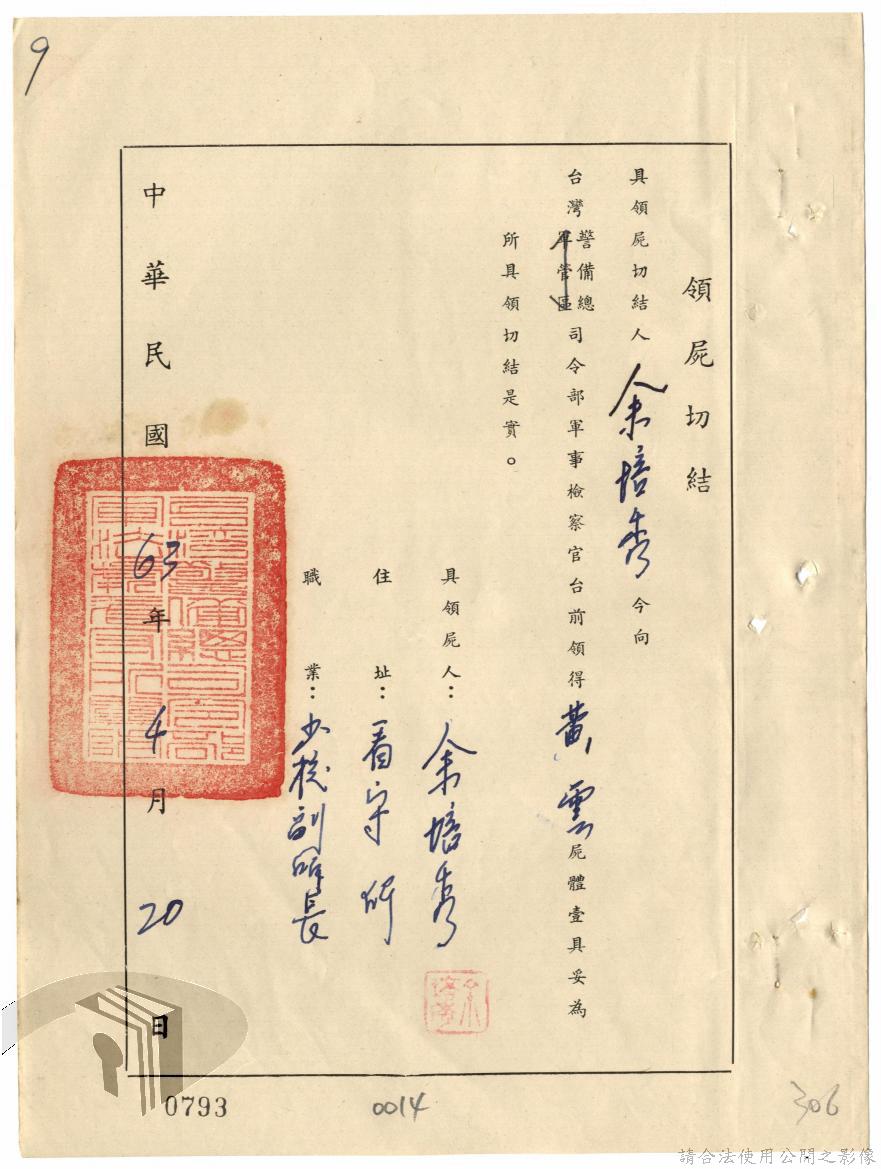 9
領屍切結
具領屍切結人余培秀今向
台灣警備總軍管區司令部軍事檢察官台前領得黃雲屍體壹具妥為
所具領切結是實。
具領屍人：余培秀
住址：看守所
職業：少校副所長
中華民國63年4月20日
余培秀
0793
0014
306
請合法使用公開之影像